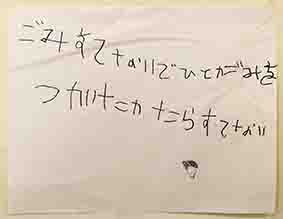 ごみすてないでひとがごみを
つかいたかたらすてない